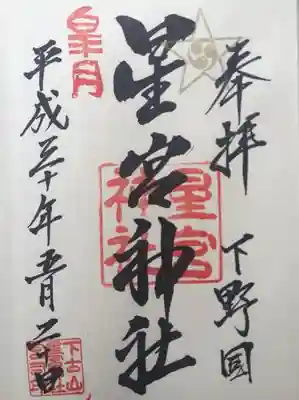 奉拝 下野国
星宮神社
星宮
神社
皐月
平成三十年五月二十日
下古山